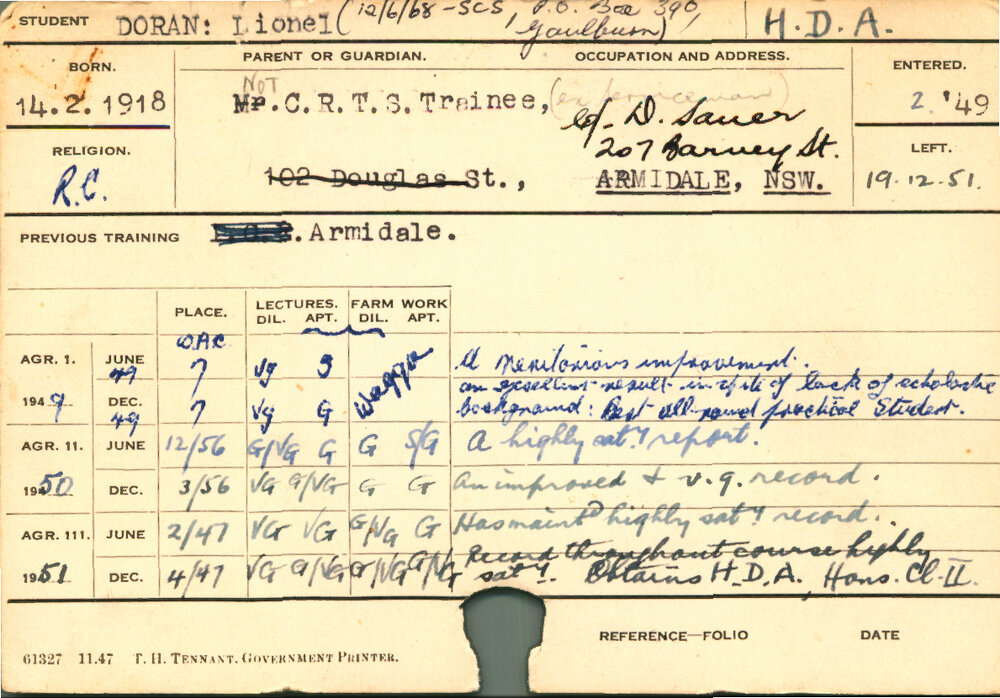 STUDENT DORAN: Lionel (12/6/68 - SCS, P.O. Box 390, Goulburn) H.D.A.
BORN. PARENT OR GUARDIAN. OCCUPATION AND ADDRESS. ENTERED.
14.2.1918 NOT Mr.C.R.T.S.Trainee, (ex serviceman) 2.'49
c/- D. Sauer
RELIGION. 207 Barney St. LEFT.
R.C. 102 Douglas St., ARMIDALE, NSW. 19.12.51.
PREVIOUS TRAINING Armidale.
PLACE. LECTURES. FARM WORK
DIL. APT. DIL. APT.
W.A.C.
AGR. 1. JUNE 49 7 Vg G Wagga A meritorious improvement.
1949 DEC. 49 7 Vg G an excellent result in spite of lack of scholastic
background: Best all-round practical Student.
AGR. 11. JUNE 12/56 G/VG G G S/G A highly sat'y report.
1950 DEC. 3/56 VG G/VG G G An improved & v.g. record.
AGR. 111. JUNE 2/47 VG VG G/VG G Has maint'd highly sat'y record.
1951 DEC. 4/47 VG G/VG G/VG G/VG Record throughout course highly
sat'y. Obtains H.D.A. Hons. Cl. II
REFERENCE—FOLIO DATE
61327 11.47 T. H. TENNANT, GOVERNMENT PRINTER.